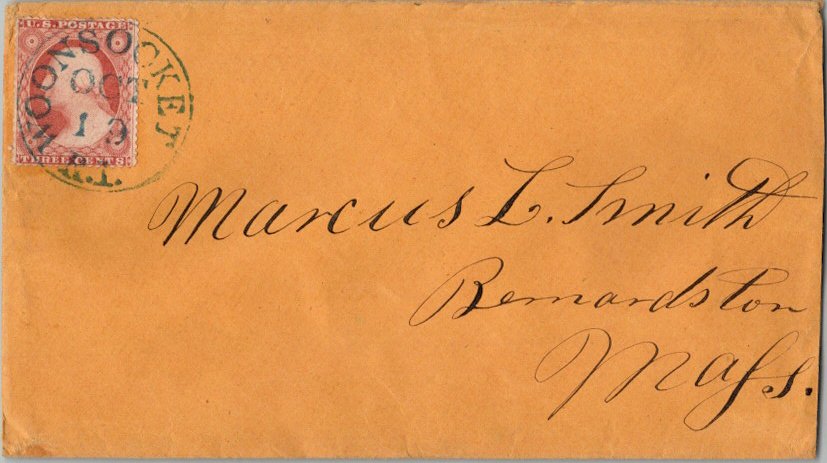 U.S. POSTAGE
THREE CENTS
WOONSOCKET
OCT
19
R.I.
Marcus L. Smith
Bernardston
Maſs.